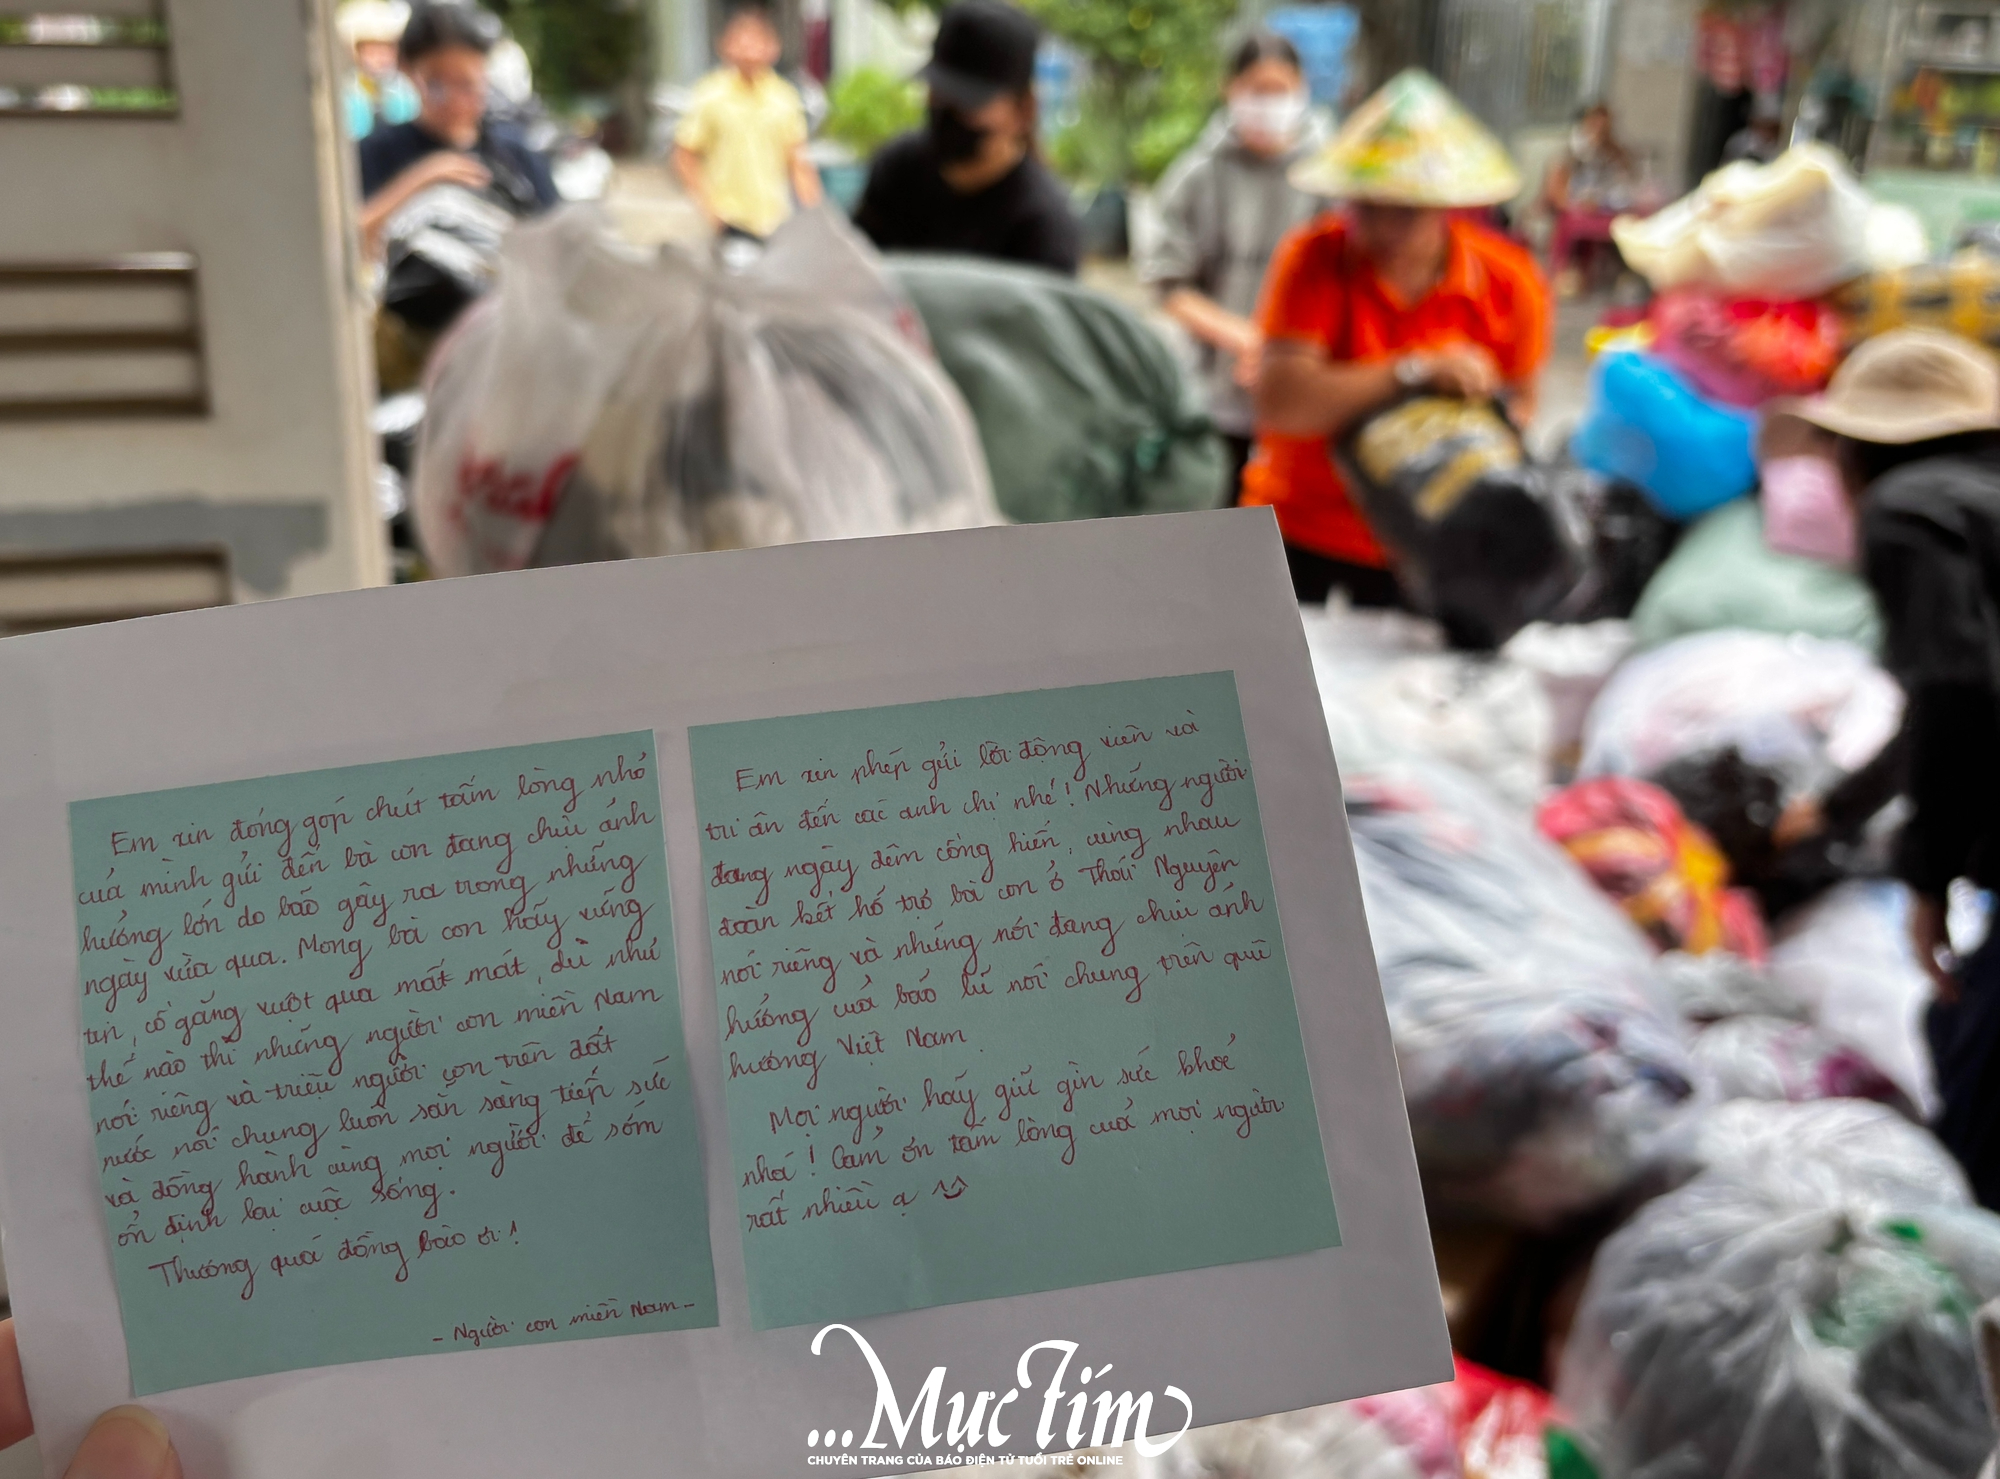 Em xin đóng góp chút tấm lòng nhỏ
của mình gửi đến bà con đang chịu ảnh
hưởng lớn do bão gây ra trong những
ngày vừa qua. Mong bà con hãy vững
tin, cố gắng vượt qua mất mát, dù như
thế nào thì những người con miền Nam
nói riêng và triệu người con trên đất
nước nói chung luôn sẵn sàng tiếp sức
và đồng hành cùng mọi người để sớm
ổn định lại cuộc sống.
Thương quá đồng bào ơi!
- Người con miền Nam -
Em xin phép gửi lời động viên và
tri ân đến các anh chị nhé! Những người
đang ngày đêm cống hiến, cùng nhau
đoàn kết hỗ trợ bà con ở Thái Nguyên
nói riêng và những nơi đang chịu ảnh
hưởng của bão lũ nói chung trên quê
hương Việt Nam.
Mọi người hãy giữ gìn sức khoẻ
nha! Cảm ơn tấm lòng của mọi người
rất nhiều ạ ^^
...Mực Tím
CHUYÊN TRANG CỦA BÁO ĐIỆN TỬ TUỔI TRẺ ONLINE